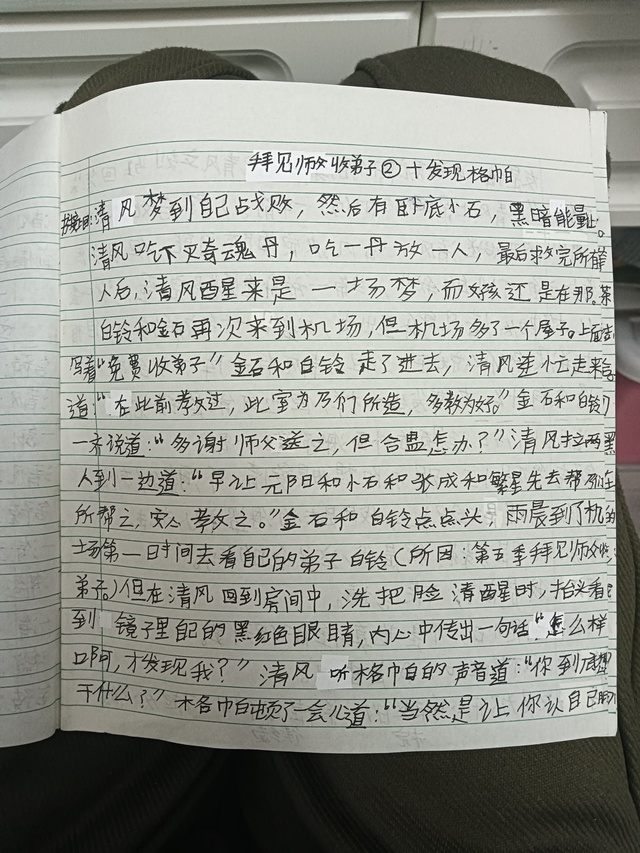 拜见师父收弟子②+发现格帕
清风梦到自己战败，然后有卧底小石，黑暗能量。
清风吃下灵奇魂丹，吃一丹放一人，最后救完所有
人后，清风醒来是一场梦，而女孩还是在那。
白铃和金石再次来到机场，但机场多了一个屋子。上面
写着“免费收弟子”金石和白铃走了进去，清风连忙走来
道：“在此前孝文过，此室为乃们所造，多教为好。”金石和白铃
一齐说道：“多谢师父送之，但合盟怎办？”清风拉两
人到一边道：“早让元阳和小石和张成和繁星先去帮
所帮之，安心孝文之。”金石和白铃点点头，雨晨到了机
场第一日时间去看自己的弟子白铃（所因：第五季拜见师父收
弟子。）但在清风回到房间中，洗把脸清醒时，抬头看
到镜子里自己的黑红色眼睛，内心中传出一句话“怎么样
啊，才发现我？”清风听格帕的声音道：“你到底想
干什么？”格帕顿了一会儿道：“当然是让你认自己